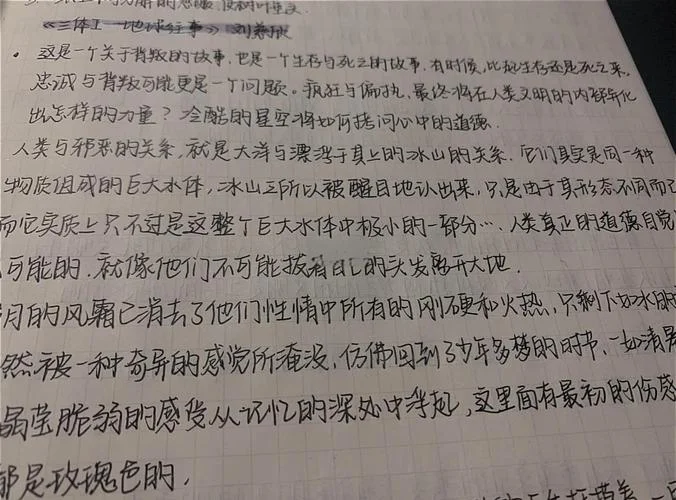 《三体I 地球往事》 刘慈欣
· 这是一个关于背叛的故事,也是一个生存与死亡的故事,有时候,比起生存还是死亡来,
忠诚与背叛可能更是一个问题。疯狂与偏执,最终将在人类文明的内部异化
出怎样的力量?冷酷的星空将如何拷问心中的道德.
人类与邪恶的关系,就是大洋与漂浮于其上的冰山的关系.它们其实是同一种
物质组成的巨大水体,冰山之所以被醒目地认出来,只是由于其形态不同而已
而它实质上只不过是这整个巨大水体中极小的一部分…人类真正的道德自觉
可能的,就像他们不可能拔着自己的头发离开大地.
月的风霜已消去了他们性情中所有的刚硬和火热,只剩下如水的
然被一种奇异的感觉所淹没,仿佛回到了少年多梦的时节,一如清晨
晶莹脆弱的感觉从记忆的深处中浮起,这里面有最初的伤感
都是玫瑰色的,